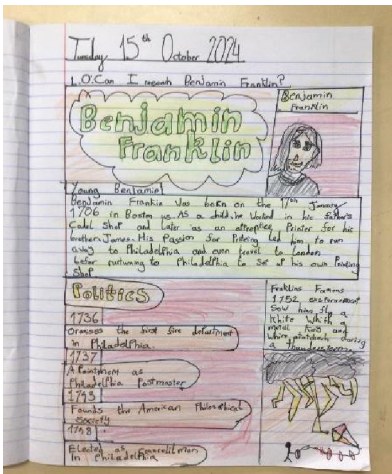 Tuesday 15th October 2024
L.O: Can I research Benjamin Franklin?
Benjamin
Franklin
Benjamin
Franklin
Young Benjamin
Benjamin Franklin was born on the 17th January
1706 in Boston us. As a child, he worked in his father's
Shop and later as an Printer for his
brother James. His Passion for Printing Led him to run
away to Philadelphia and even travel to London
to Philadelphia to set of his own Printing
Shop
Politics
1736
the first fire department
in Philadelphia.
1737
as
Philadelphia Postmaster
1743
Founds the American Philosophical
Society
1748
Elected as
in Philadelphia
Franklins Famous
1752
Saw him fly a
Which a
metal and
during
a